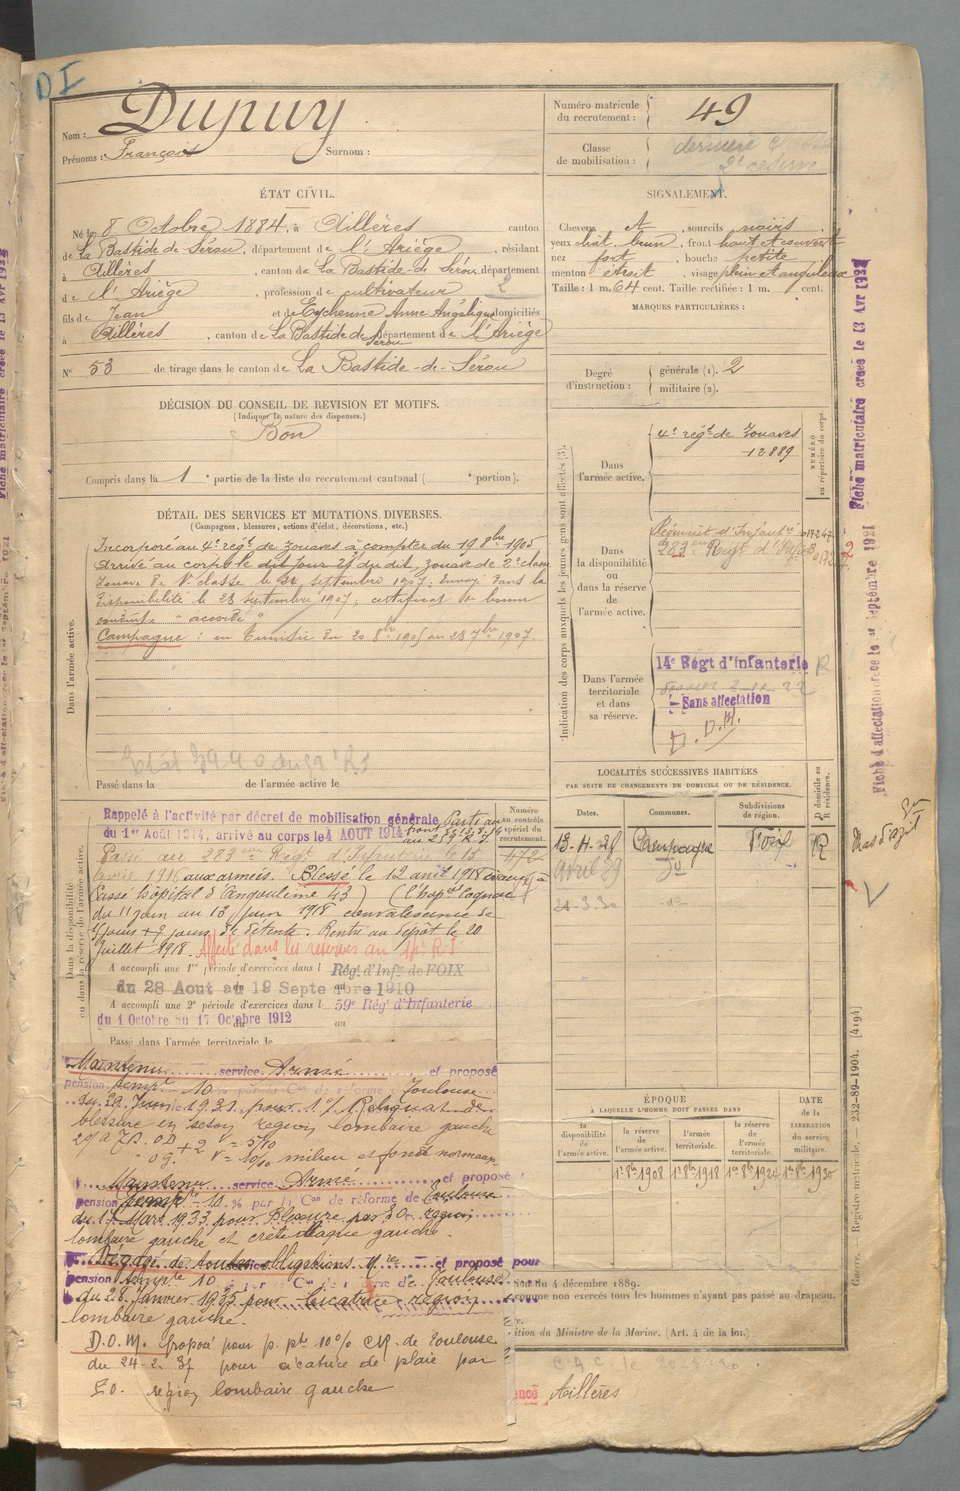 D I
Nom : Dupuy
Prénoms : François Surnom :
Numéro matricule du recrutement : 49
Classe de mobilisation : dernière
2e réserve
ÉTAT CIVIL.
Né le 8 Octobre 1884, à Aillères canton
de La Bastide de Sérou, département de l'Ariège, résidant
à Aillères, canton de La Bastide-de Sérou département
d e l'Ariège, profession de cultivateur 2
fils de Jean et de Eychenne Anne Angélique domiciliés
à Aillères, canton de La Bastide de Sérou département de l'Ariège
N° 53 de tirage dans le canton de La Bastide-de-Sérou
SIGNALEMENT.
Cheveux et, sourcils noirs
yeux chât. brun, front haut et couvert
nez fort, bouche petite
menton étroit, visage plein et anguleux
Taille : 1 m. 64 cent. Taille rectifiée : 1 m. cent.
MARQUES PARTICULIÈRES :
Degré d'instruction : générale (1). 2
militaire (2).
DÉCISION DU CONSEIL DE REVISION ET MOTIFS.
(Indiquer la nature des dispenses.)
Bon
Compris dans la 1 e partie de la liste du recrutement cantonal ( e portion).
DÉTAIL DES SERVICES ET MUTATIONS DIVERSES.
(Campagnes, blessures, actions d'éclat, décorations, etc.)
Dans l'armée active.
Incorporé au 4e régt de Zouaves à compter du 19 8bre 1905
Arrivé au corps le dit jour 29 du dit, zouave de 2e classe
Zouave de 1e classe le 22 septembre 1907. Envoyé dans la
disponibilité le 23 septembre 1907, certificat de bonne
conduite "accordé"
Campagne : en Tunisie du 20 8bre 1905 au 23 7bre 1907.
Passé dans la de l'armée active le
Indication des corps auxquels les jeunes gens sont affectés (3).
NUMÉRO au répertoire du corps.
Dans l'armée active.
4e régt de Zouaves
12889
Dans la disponibilité ou dans la réserve de l'armée active.
Régiment d'Infanterie
283e Régt d'Infrie
Dans l'armée territoriale et dans sa réserve.
14e Régt d'Infanterie R
Sans affectation
D. D. M.
LOCALITÉS SUCCESSIVES HABITÉES
PAR SUITE DE CHANGEMENTS DE DOMICILE OU DE RÉSIDENCE.
Dates. Communes. Subdivisions de région. D domicile ou R résidence.
Campagne Foix R
avril 29 do
21-3-30
Dans la disponibilité ou dans la réserve de l'armée active.
Numéro au contrôle spécial du recrutement.
472
Rappelé à l'activité par décret de mobilisation générale
du 1er Août 1914, arrivé au corps le 4 AOUT 1914
Passé au 283eme Régt d'Infanterie le 15
avril 1916 aux armées. Blessé le 12 avril 1918
Passé Hôpital d'Angoulême 43) (l'hopal Cognac
du 11 juin au 13 juin 1918 convalescence de
7 jours + 2 jours de détente. Rentré au dépôt le 20
Juillet 1918. Affecté dans les réserves au 14e R-I
A accompli une 1re période d'exercices dans l Régt d'Infie de FOIX
du 28 Aout au 19 Septembre 1910
A accompli une 2e période d'exercices dans l 59e Régt d'Infanterie
du 1 Octobre au 17 Octobre 1912
Passé dans l'armée territoriale le
Maintenu service Armé et proposé
pension tempre 10 % par la Con de réforme Toulouse
du 29 Juin 1931 pour 1°/ Reliquat de
blessure en séton région lombaire gauche
milieu et fond normaux
Maintenu service Armé et proposé
pension tempre 10 % par la Con de réforme de Toulouse
du 17 Mars 1933 pour Blessure par E.O. région
lombaire gauche et crête iliaque gauche.
Dégagé de toutes obligations Mres et proposé pour
pension tempre 10 par Con de Toulouse
du 28 Janvier 1935 pour Cicatrice région
lombaire gauche.
D.O.M. Proposé pour p. pte 10% CR. de Toulouse
du 24-2-37 pour cicatrice de plaie par
E.O. région lombaire gauche
ÉPOQUE
À LAQUELLE L'HOMME DOIT PASSER DANS
DATE de la LIBÉRATION du service militaire.
la disponibilité de l'armée active. la réserve de l'armée active. l'armée territoriale. la réserve de l'armée territoriale.
1er 8bre 1908 1er 8bre 1918 1er 8bre 1924 1er 8bre 1930
du 4 décembre 1889.
comme non exercés tous les hommes n'ayant pas passé au drapeau.
ition du Ministre de la Marine. (Art. 4 de la loi.)
Aillères
Guerre. Registre matricule. — 232-89-1904. [4194]
Fiche matriculaire créée le 13 Avr 1932
Fiche d'affectation créée le 1er Septembre 1921
Mas d'Azil